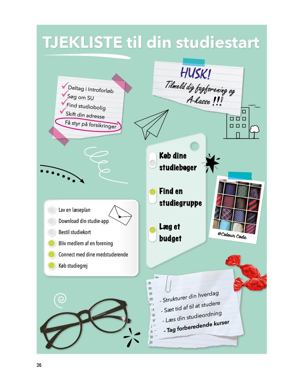 TJEKLISTE til din studiestart
Deltag i Introforløb
Søg om SU
Find studiebolig
Skift din adresse
Få styr på forsikringer
HUSK!
Tilmeld dig fagforening og
A-kasse !!!
Køb dine
studiebøger
Find en
studiegruppe
Læg et
budget
Lav en læseplan
Download din studie app
Bestil studiekort
Bliv medlem af en forening
Connect med dine medstuderende
Køb studiegrej
#Colour Code
- Strukturer din hverdag
- Sæt tid af til at studere
- Læs din studieordning
- Tag forberedende kurser
36